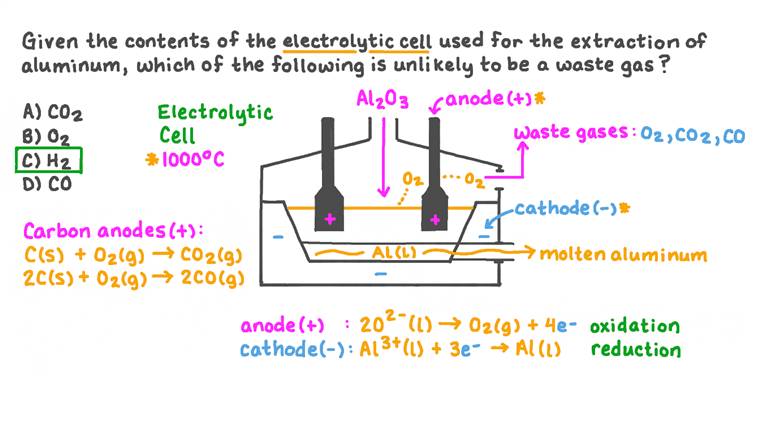 Given the contents of the electrolytic cell used for the extraction of
aluminum, which of the following is unlikely to be a waste gas?
A) CO₂
B) O₂
C) H₂
D) CO
Electrolytic
Cell
*1000°C
Al₂O₃
anode(+)*
waste gases: O₂, CO₂, CO
O₂
O₂
+
+
cathode(-)*
-
-
-
Al(l)
molten aluminum
Carbon anodes(+):
C(s) + O₂(g) → CO₂(g)
2C(s) + O₂(g) → 2CO(g)
anode(+) : 2O²⁻(l) → O₂(g) + 4e- oxidation
cathode(-): Al³⁺(l) + 3e- → Al(l) reduction